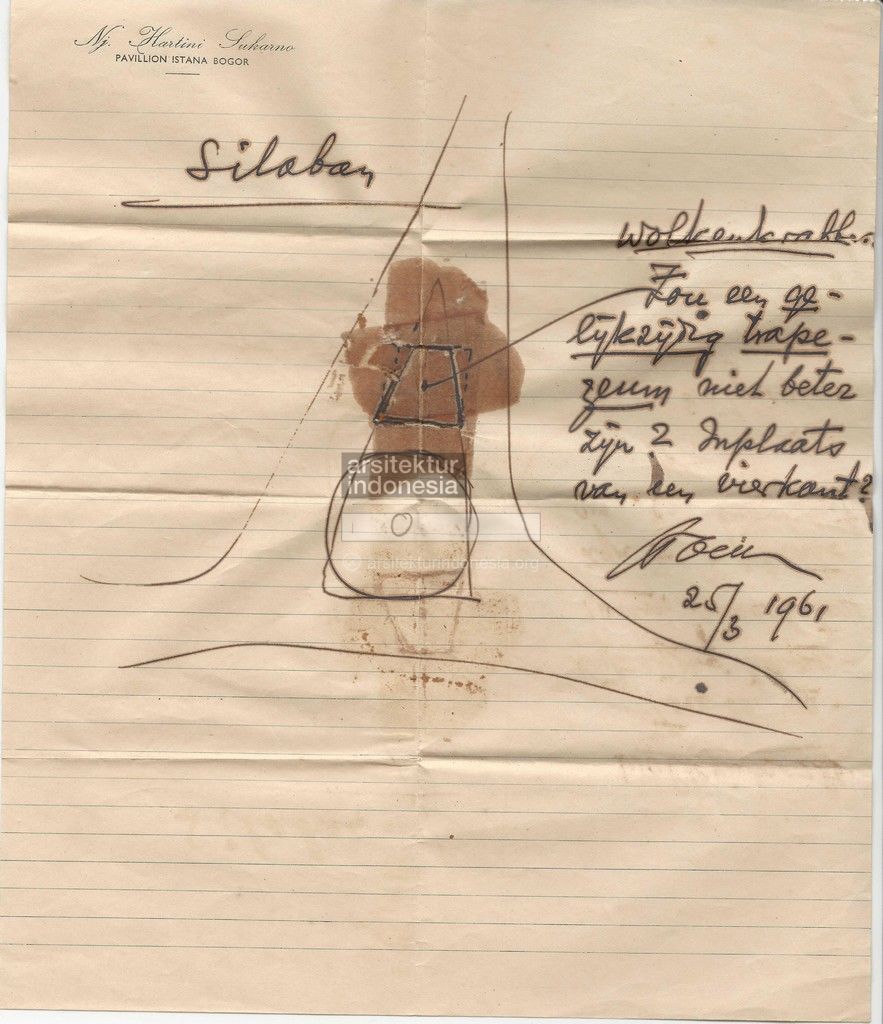 Nj. Hartini Sukarno
PAVILLION ISTANA BOGOR
Silaban
Wolkenkrabber
Zou een ge-
lijkzijdig trape-
zeum niet beter
zijn? Inplaats
van een vierkant?
25/3 1961
arsitektur
indonesia
© arsitekturindonesia.org